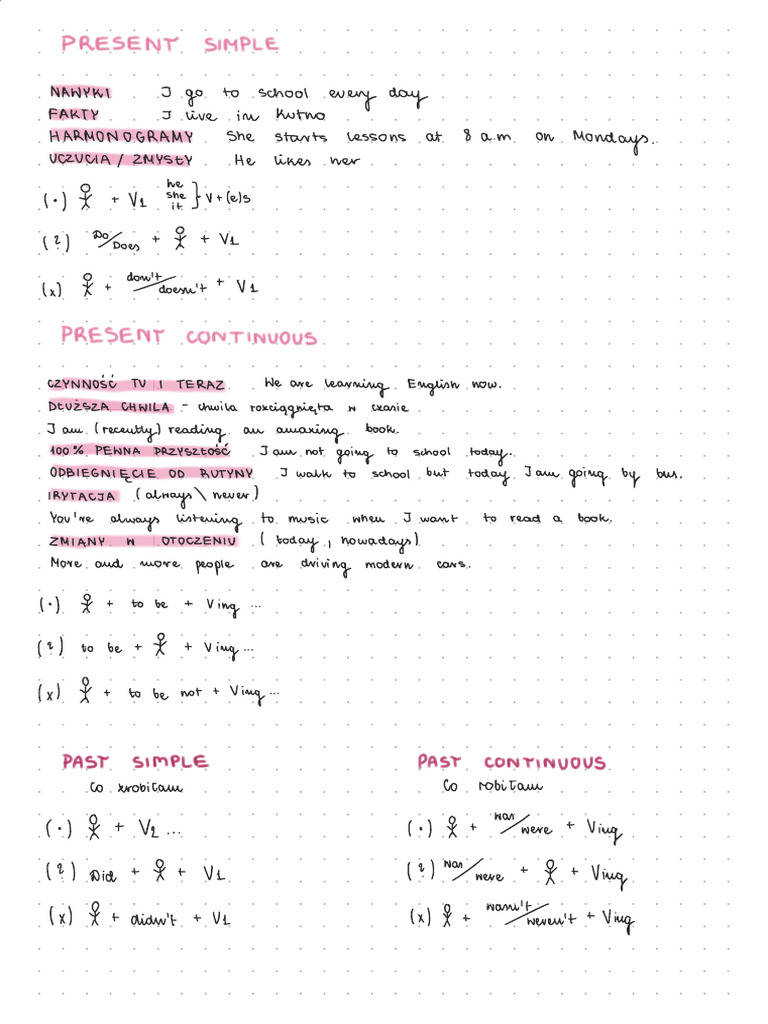 PRESENT SIMPLE
NAWYKI I go to school every day
FAKTY I live in Kutno
HARMONOGRAMY She starts lessons at 8 a.m. on Mondays.
UCZUCIA / ZMYSŁY He likes her
(.) + V1 he she it } V + (e)s
(?) Do/Does + + V1
(x) + don't/doesn't + V1
PRESENT CONTINUOUS
CZYNNOŚĆ TU I TERAZ We are learning English now.
DŁUŻSZA CHWILA - chwila rozciągnięta w czasie
I am (recently) reading an amazing book.
100% PEWNA PRZYSZŁOŚĆ I am not going to school today.
ODBIEGNIĘCIE OD RUTYNY I walk to school but today I am going by bus.
IRYTACJA (always \ never)
You're always listening to music when I want to read a book.
ZMIANY W OTOCZENIU (today, nowadays)
More and more people are driving modern cars.
(.) + to be + Ving ...
(?) to be + + Ving ...
(x) + to be not + Ving ...
PAST SIMPLE
Co zrobiłam
(.) + V2 ...
(?) Did + + V1
(x) + didn't + V1
PAST CONTINUOUS
Co robiłam
(.) + was/were + Ving
(?) was/were + + Ving
(x) + wasn't/weren't + Ving